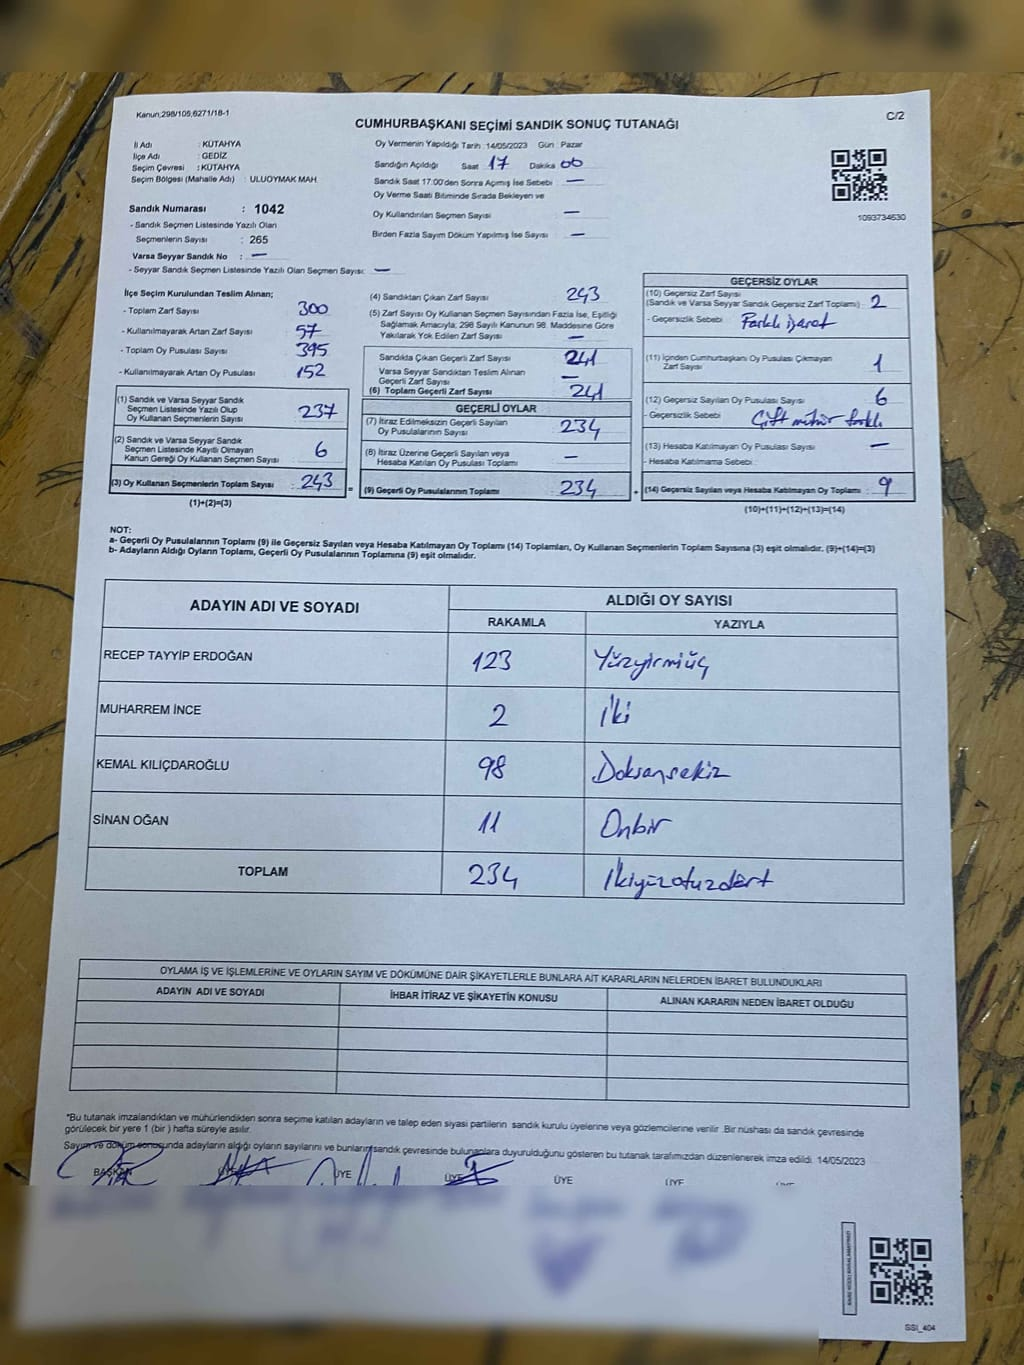 Kanun;298/105,6271/18-1
C/2
CUMHURBAŞKANI SEÇİMİ SANDIK SONUÇ TUTANAĞI
İl Adı : KÜTAHYA
İlçe Adı : GEDİZ
Seçim Çevresi : KÜTAHYA
Seçim Bölgesi (Mahalle Adı) : ULUOYMAK MAH.
Sandık Numarası : 1042
- Sandık Seçmen Listesinde Yazılı Olan
Seçmenlerin Sayısı : 265
Varsa Seyyar Sandık No : —
- Seyyar Sandık Seçmen Listesinde Yazılı Olan Seçmen Sayısı: —
Oy Vermenin Yapıldığı Tarih :14/05/2023 Gün : Pazar
Sandığın Açıldığı Saat 17 Dakika 00
Sandık Saat 17:00'den Sonra Açımış İse Sebebi : —
Oy Verme Saati Bitiminde Sırada Bekleyen ve
Oy Kullandırılan Seçmen Sayısı : —
Birden Fazla Sayım Döküm Yapılmış İse Sayısı : —
1093734630
İlçe Seçim Kurulundan Teslim Alınan;
- Toplam Zarf Sayısı : 300
- Kullanılmayarak Artan Zarf Sayısı : 57
- Toplam Oy Pusulası Sayısı : 395
- Kullanılmayarak Artan Oy Pusulası : 152
(1) Sandık ve Varsa Seyyar Sandık
Seçmen Listesinde Yazılı Olup
Oy Kullanan Seçmenlerin Sayısı : 237
(2) Sandık ve Varsa Seyyar Sandık
Seçmen Listesinde Kayıtlı Olmayan
Kanun Gereği Oy Kullanan Seçmen Sayısı : 6
(3) Oy Kullanan Seçmenlerin Toplam Sayısı : 243
(1)+(2)=(3)
(4) Sandıktan Çıkan Zarf Sayısı : 243
(5) Zarf Sayısı Oy Kullanan Seçmen Sayısından Fazla İse, Eşitliği
Sağlamak Amacıyla; 298 Sayılı Kanunun 98. Maddesine Göre
Yakılarak Yok Edilen Zarf Sayısı : —
Sandıkta Çıkan Geçerli Zarf Sayısı : 241
Varsa Seyyar Sandıktan Teslim Alınan
Geçerli Zarf Sayısı : —
(6) Toplam Geçerli Zarf Sayısı : 241
GEÇERLİ OYLAR
(7) İtiraz Edilmeksizin Geçerli Sayılan
Oy Pusulalarının Sayısı : 234
(8) İtiraz Üzerine Geçerli Sayılan veya
Hesaba Katılan Oy Pusulası Toplamı : —
= (9) Geçerli Oy Pusulalarının Toplamı : 234
GEÇERSİZ OYLAR
(10) Geçersiz Zarf Sayısı
(Sandık ve Varsa Seyyar Sandık Geçersiz Zarf Toplamı) : 2
- Geçersizlik Sebebi : Farklı işaret
(11) İçinden Cumhurbaşkanı Oy Pusulası Çıkmayan
Zarf Sayısı : 1
(12) Geçersiz Sayılan Oy Pusulası Sayısı : 6
- Geçersizlik Sebebi : Çift mühür farklı
(13) Hesaba Katılmayan Oy Pusulası Sayısı : —
- Hesaba Katılmama Sebebi :
+ (14) Geçersiz Sayılan veya Hesaba Katılmayan Oy Toplamı : 9
(10)+(11)+(12)+(13)=(14)
NOT:
a- Geçerli Oy Pusulalarının Toplamı (9) ile Geçersiz Sayılan veya Hesaba Katılmayan Oy Toplamı (14) Toplamları, Oy Kullanan Seçmenlerin Toplam Sayısına (3) eşit olmalıdır. (9)+(14)=(3)
b- Adayların Aldığı Oyların Toplamı, Geçerli Oy Pusulalarının Toplamına (9) eşit olmalıdır.
ADAYIN ADI VE SOYADI
ALDIĞI OY SAYISI
RAKAMLA YAZIYLA
RECEP TAYYİP ERDOĞAN 123 Yüzyirmiüç
MUHARREM İNCE 2 İki
KEMAL KILIÇDAROĞLU 98 Doksansekiz
SİNAN OĞAN 11 Onbir
TOPLAM 234 İkiyüzotuzdört
OYLAMA İŞ VE İŞLEMLERİNE VE OYLARIN SAYIM VE DÖKÜMÜNE DAİR ŞİKAYETLERLE BUNLARA AİT KARARLARIN NELERDEN İBARET BULUNDUKLARI
ADAYIN ADI VE SOYADI İHBAR İTİRAZ VE ŞİKAYETİN KONUSU ALINAN KARARIN NEDEN İBARET OLDUĞU
*Bu tutanak imzalandıktan ve mühürlendikten sonra seçime katılan adayların ve talep eden siyasi partilerin sandık kurulu üyelerine veya gözlemcilerine verilir .Bir nüshası da sandık çevresinde
görülecek bir yere 1 (bir ) hafta süreyle asılır.
Sayım ve döküm sonucunda adayların aldığı oyların sayılarını ve bunların sandık çevresinde bulunanlara duyurulduğunu gösteren bu tutanak tarafımızdan düzenlenerek imza edildi. 14/05/2023
BAŞKAN ÜYE ÜYE ÜYE ÜYE ÜYE ÜYE
SSI_404